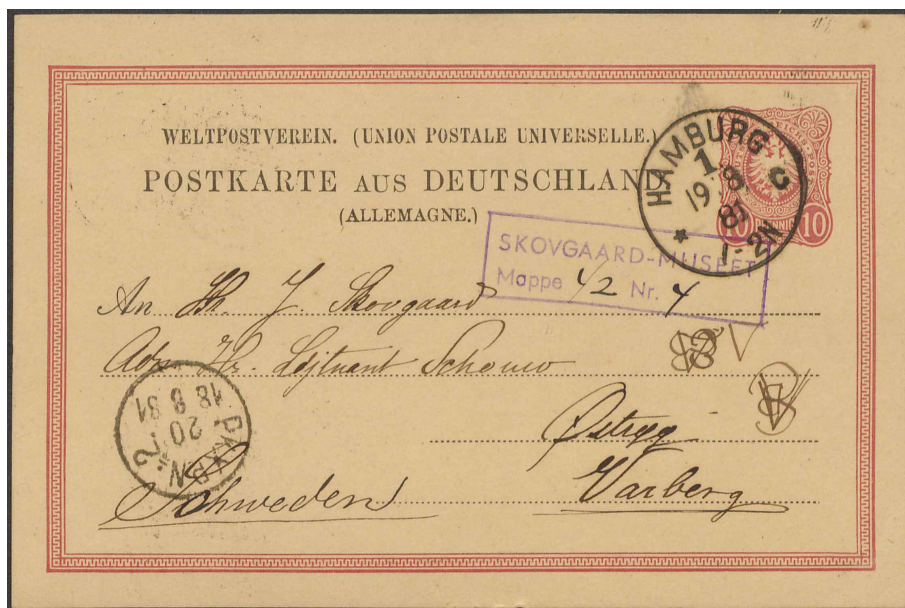 WELTPOSTVEREIN. (UNION POSTALE UNIVERSELLE.)
POSTKARTE AUS DEUTSCHLAND
(ALLEMAGNE.)
HAMBURG
1
19 8 81
1-2N
10 PFENNIG 10
SKOVGAARD-MUSEET
Mappe 1/2 Nr. 4
An Hr. J. Skovgaard
Adr. Hr. Löjtnant Schouw
Østryg
Varberg
Schweden
PKXPN: 2
20
18 8 81